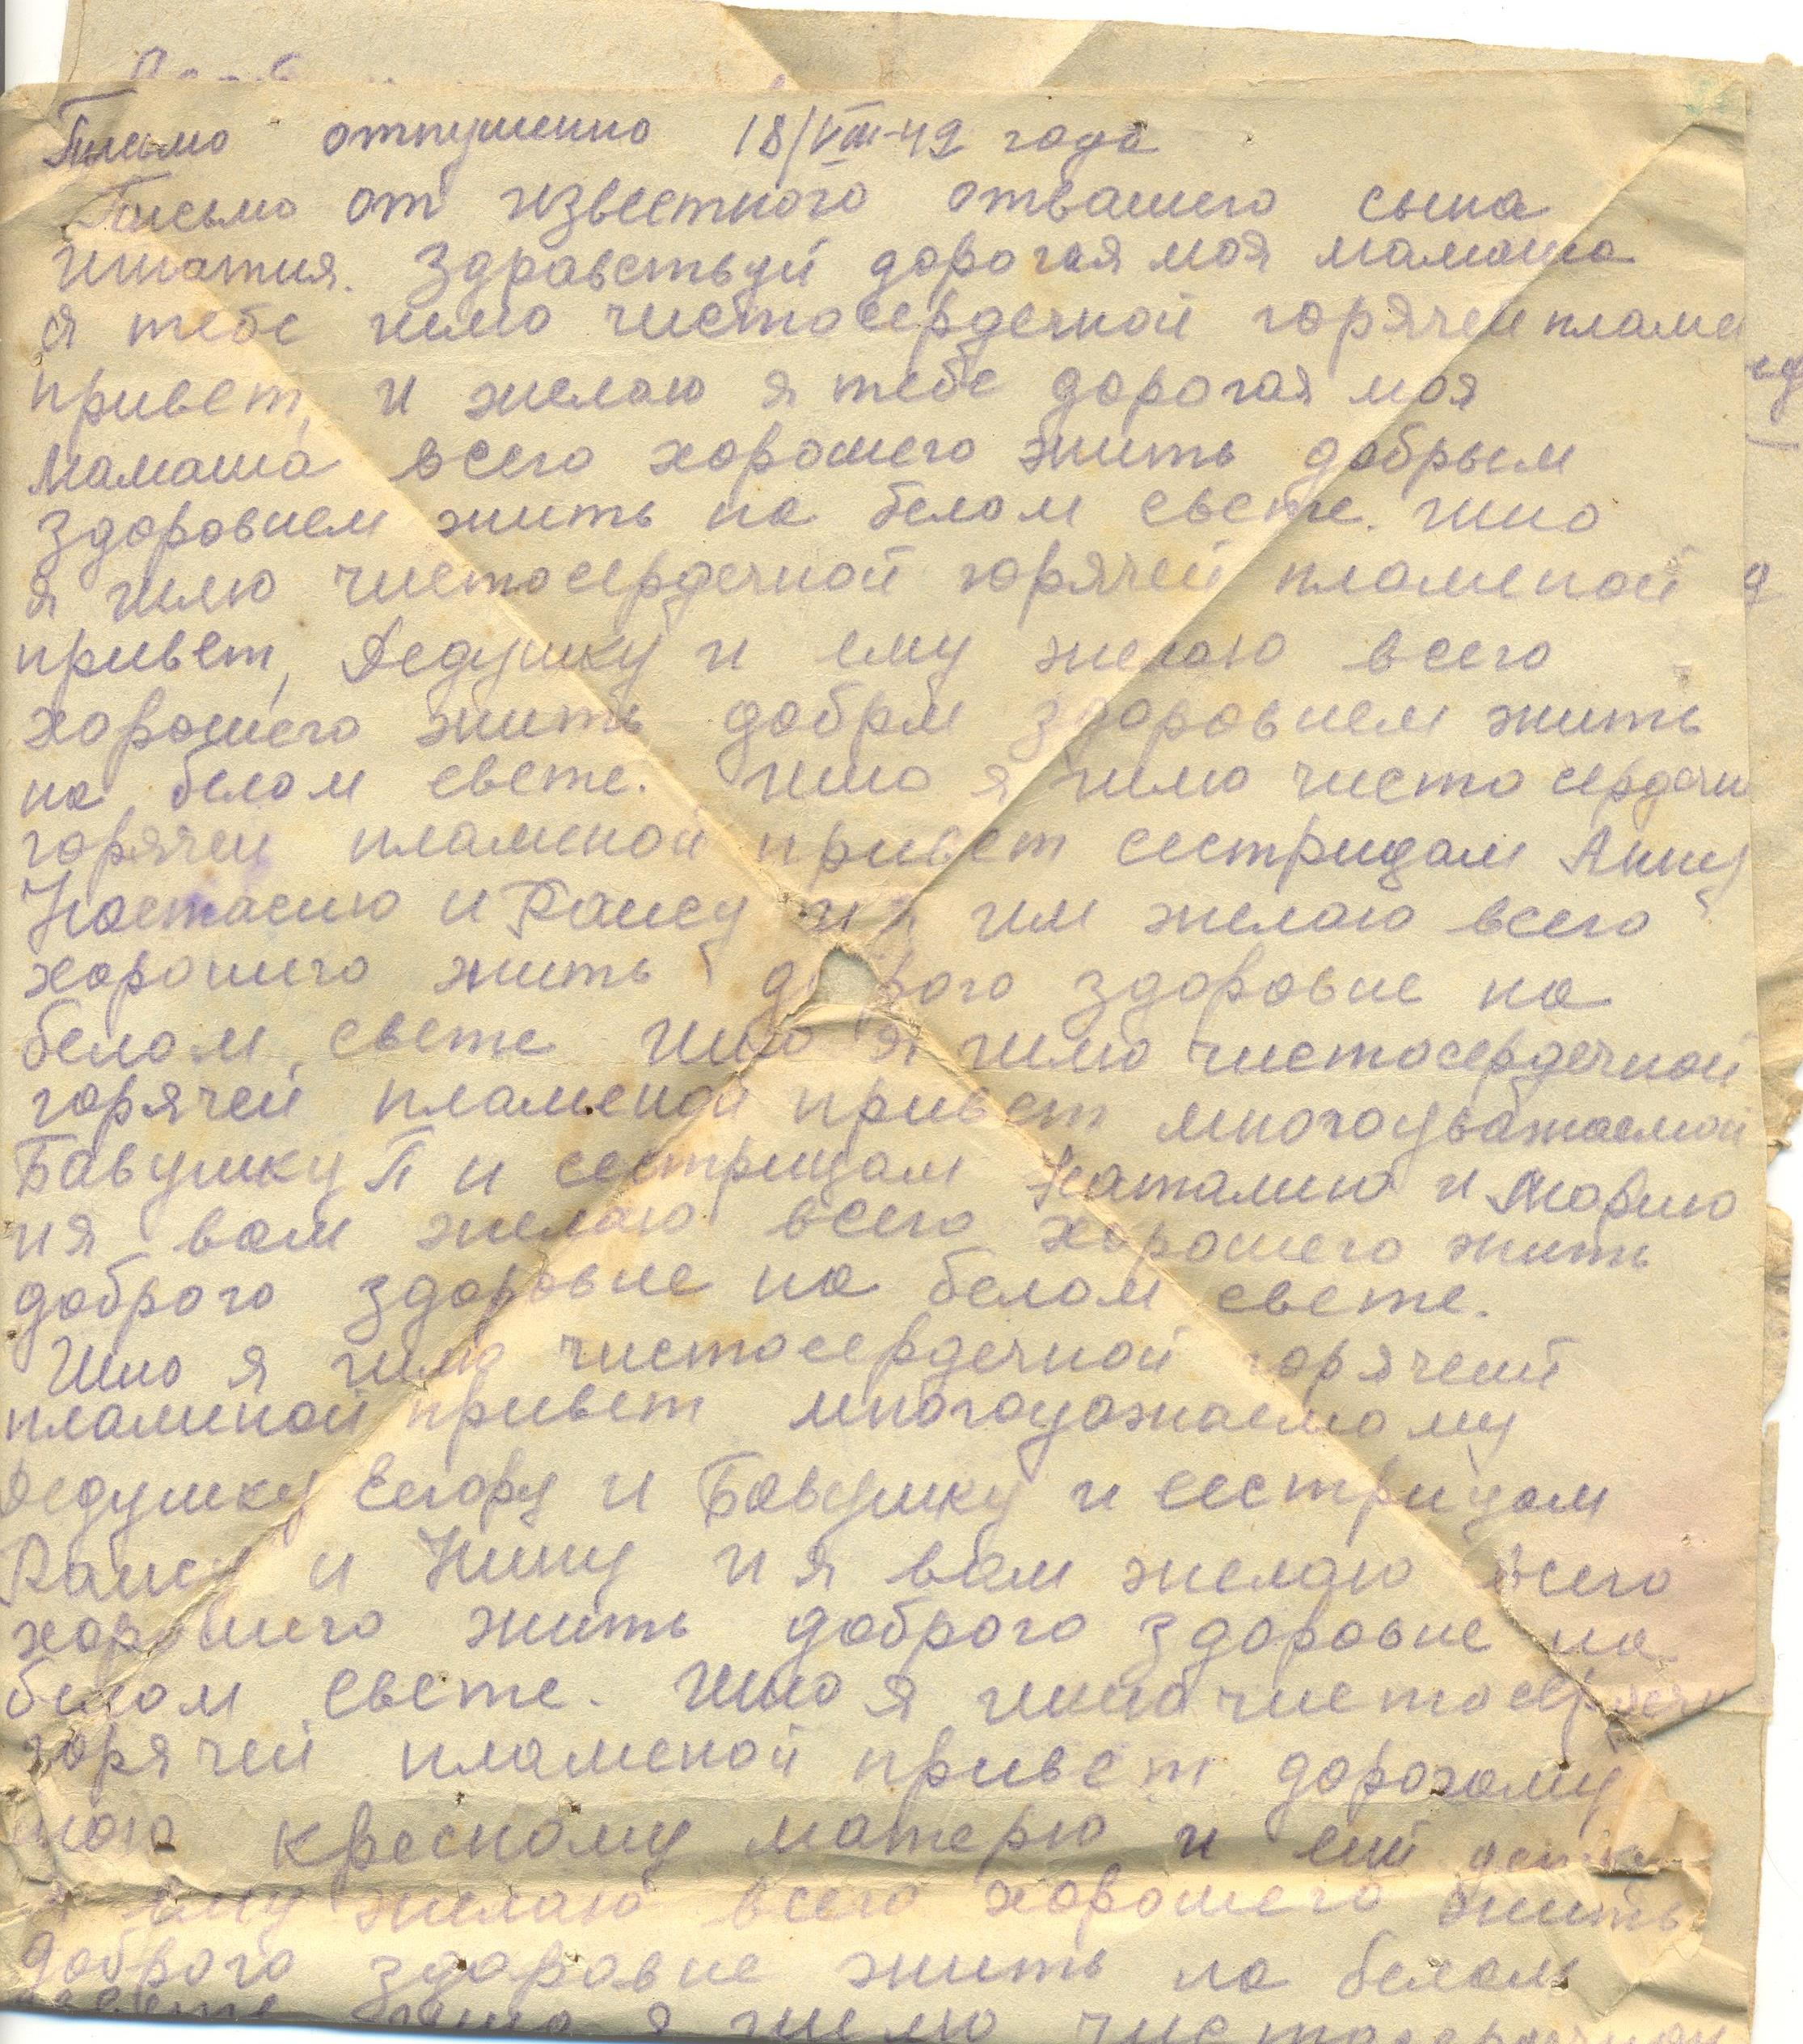 Письмо отпушенно 18/VIII-42 года
Письмо от известного отвашего сына
Игнатия. Здравствуй дорогая моя мамаша
я тебе шлю чистосердечной горячей пламе
привет, и желаю я тебе дорогая моя
мамаша всего хорошего жить добрым
здоровием жить на белом свете. ишо
я шлю чистосердечной горячей пламеной
привет, Дедушку и ему желаю всего
хорошего жить добрм здоровием жить
на белом свете. ишо я шлю чисто сердечн
горячей пламеной привет сестрицам Анну
Настасию и Раису и я им желаю всего
хорошего жить здоровие на
белом свете ишо я шлю чистосердечной
горячей пламеной привет многоуважаемой
Бавушку П и сестрицам Наталию и Марию
ия вам желаю всего хорошего жить
доброго здоровие на белом свете.
Ишо я шлю чистосердечной горячей
пламеной привет многоуажаемому
Дедушку Егору и Бавушку и сестрицам
Раису и Нину и я вам желаю всего
хорошего жить доброго здоровие на
белом свете. Ишо я шлю чистосердечн
горячей пламеной привет дорогому
мою кресному матерю и ей
я ему желаю всего хорошего жить
доброго здоровие жить на белом
свете ишо я шлю чистосердечной